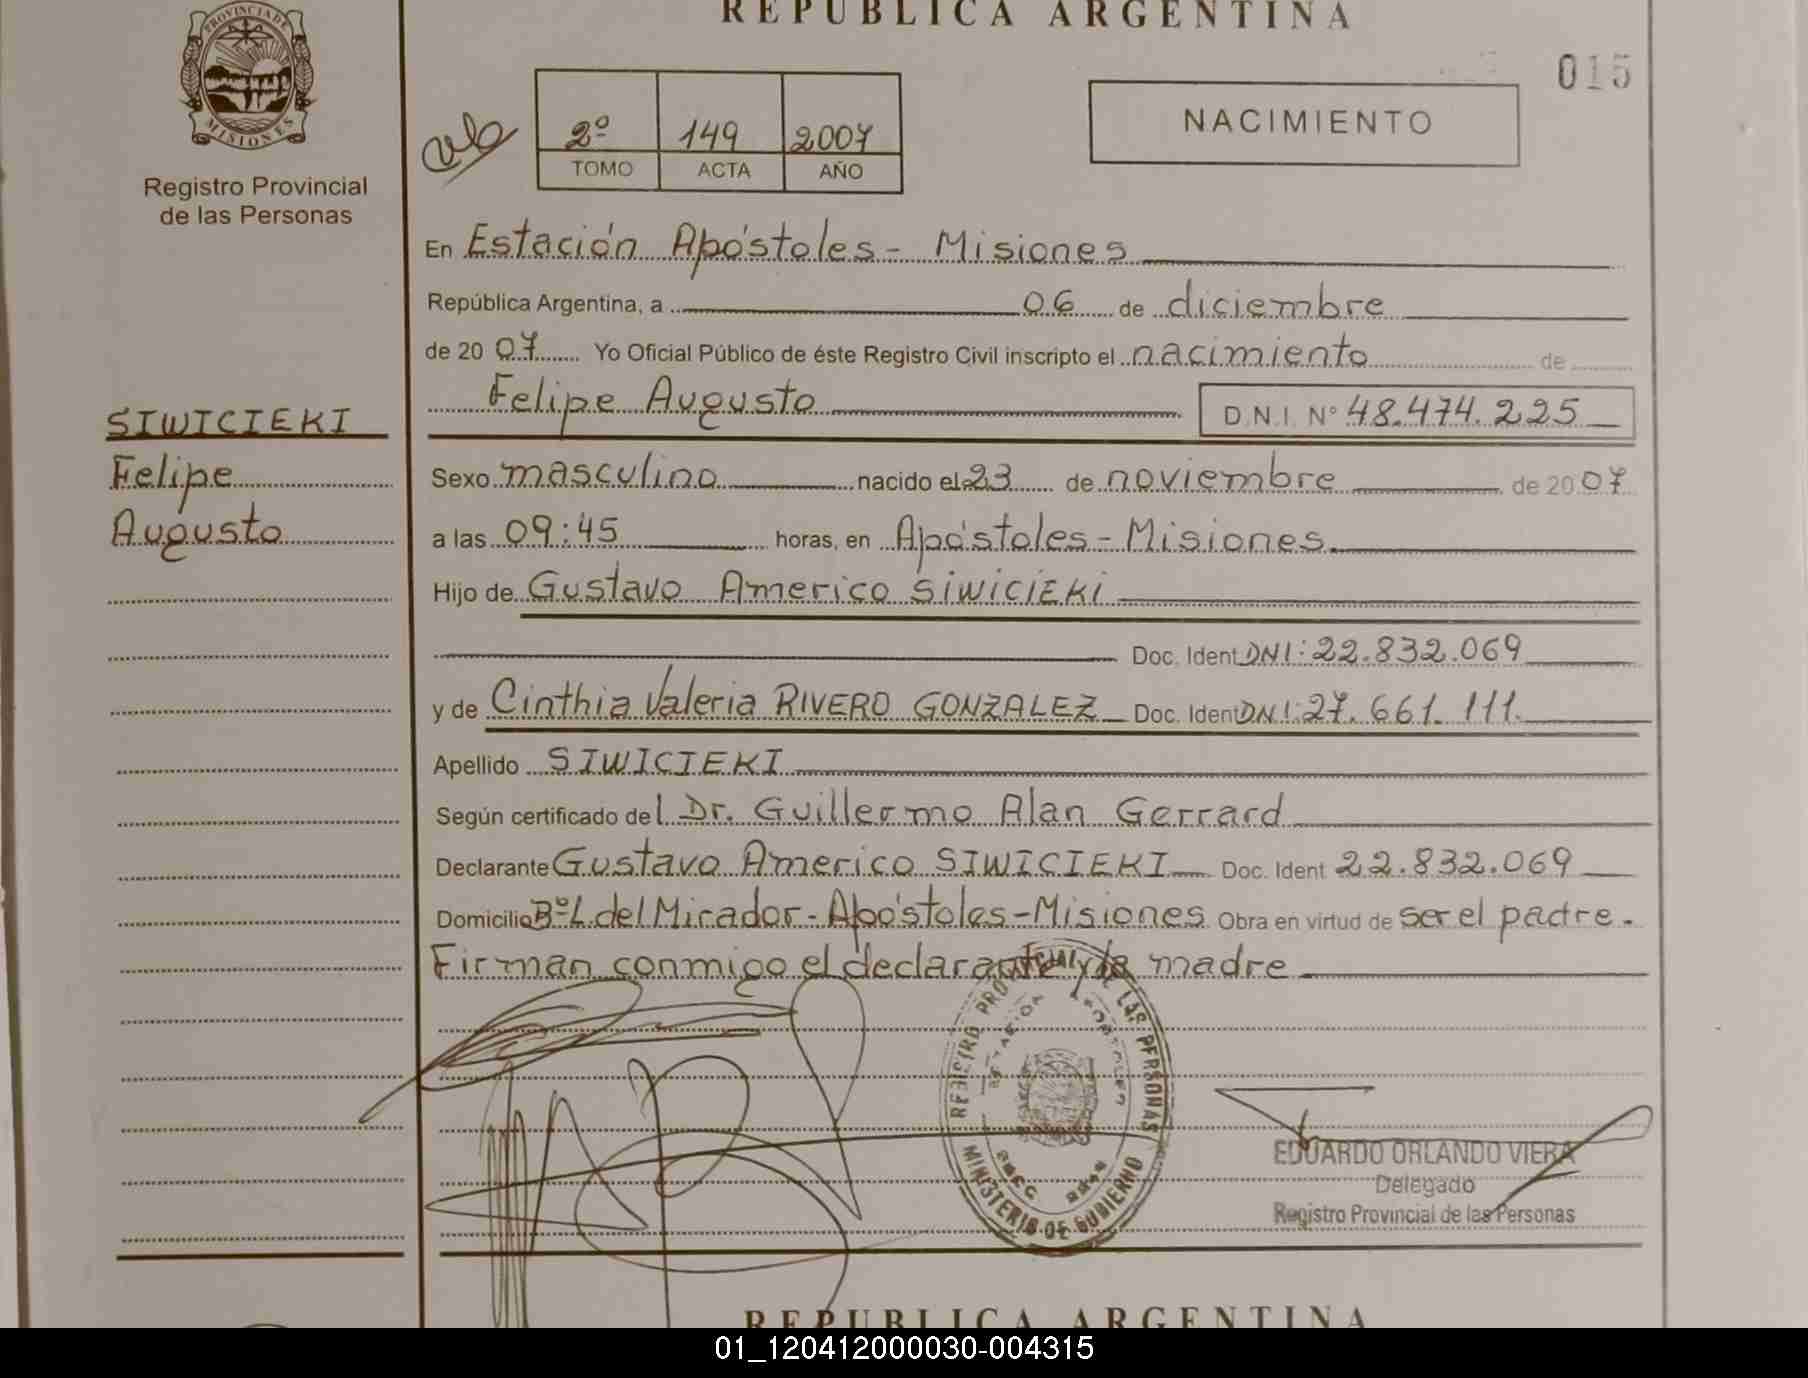 REPUBLICA ARGENTINA
015
PROVINCIA DE MISIONES
Registro Provincial
de las Personas
2º 149 2007
TOMO ACTA AÑO
NACIMIENTO
En Estación Apóstoles - Misiones
República Argentina, a 06 de diciembre
de 20 07 Yo Oficial Público de éste Registro Civil inscripto el nacimiento de
Felipe Augusto D.N.I. Nº 48.474.225
SIWICIEKI
Felipe
Augusto
Sexo masculino nacido el 23 de noviembre de 20 07
a las 09:45 horas, en Apóstoles - Misiones.
Hijo de Gustavo Americo SIWICIEKI
Doc. Ident DNI: 22.832.069
y de Cinthia Valeria RIVERO GONZALEZ Doc. Ident DNI: 27.661.111.
Apellido SIWICIEKI
Según certificado del Dr. Guillermo Alan Gerrard
Declarante Gustavo Americo SIWICIEKI Doc. Ident 22.832.069
Domicilio Bº L. del Mirador - Apóstoles - Misiones Obra en virtud de ser el padre.
Firman conmigo el declarante y la madre
REGISTRO PROVINCIAL DE LAS PERSONAS
MINISTERIO DE GOBIERNO
EDUARDO ORLANDO VIERA
Delegado
Registro Provincial de las Personas
REPUBLICA ARGENTINA
01_120412000030-004315